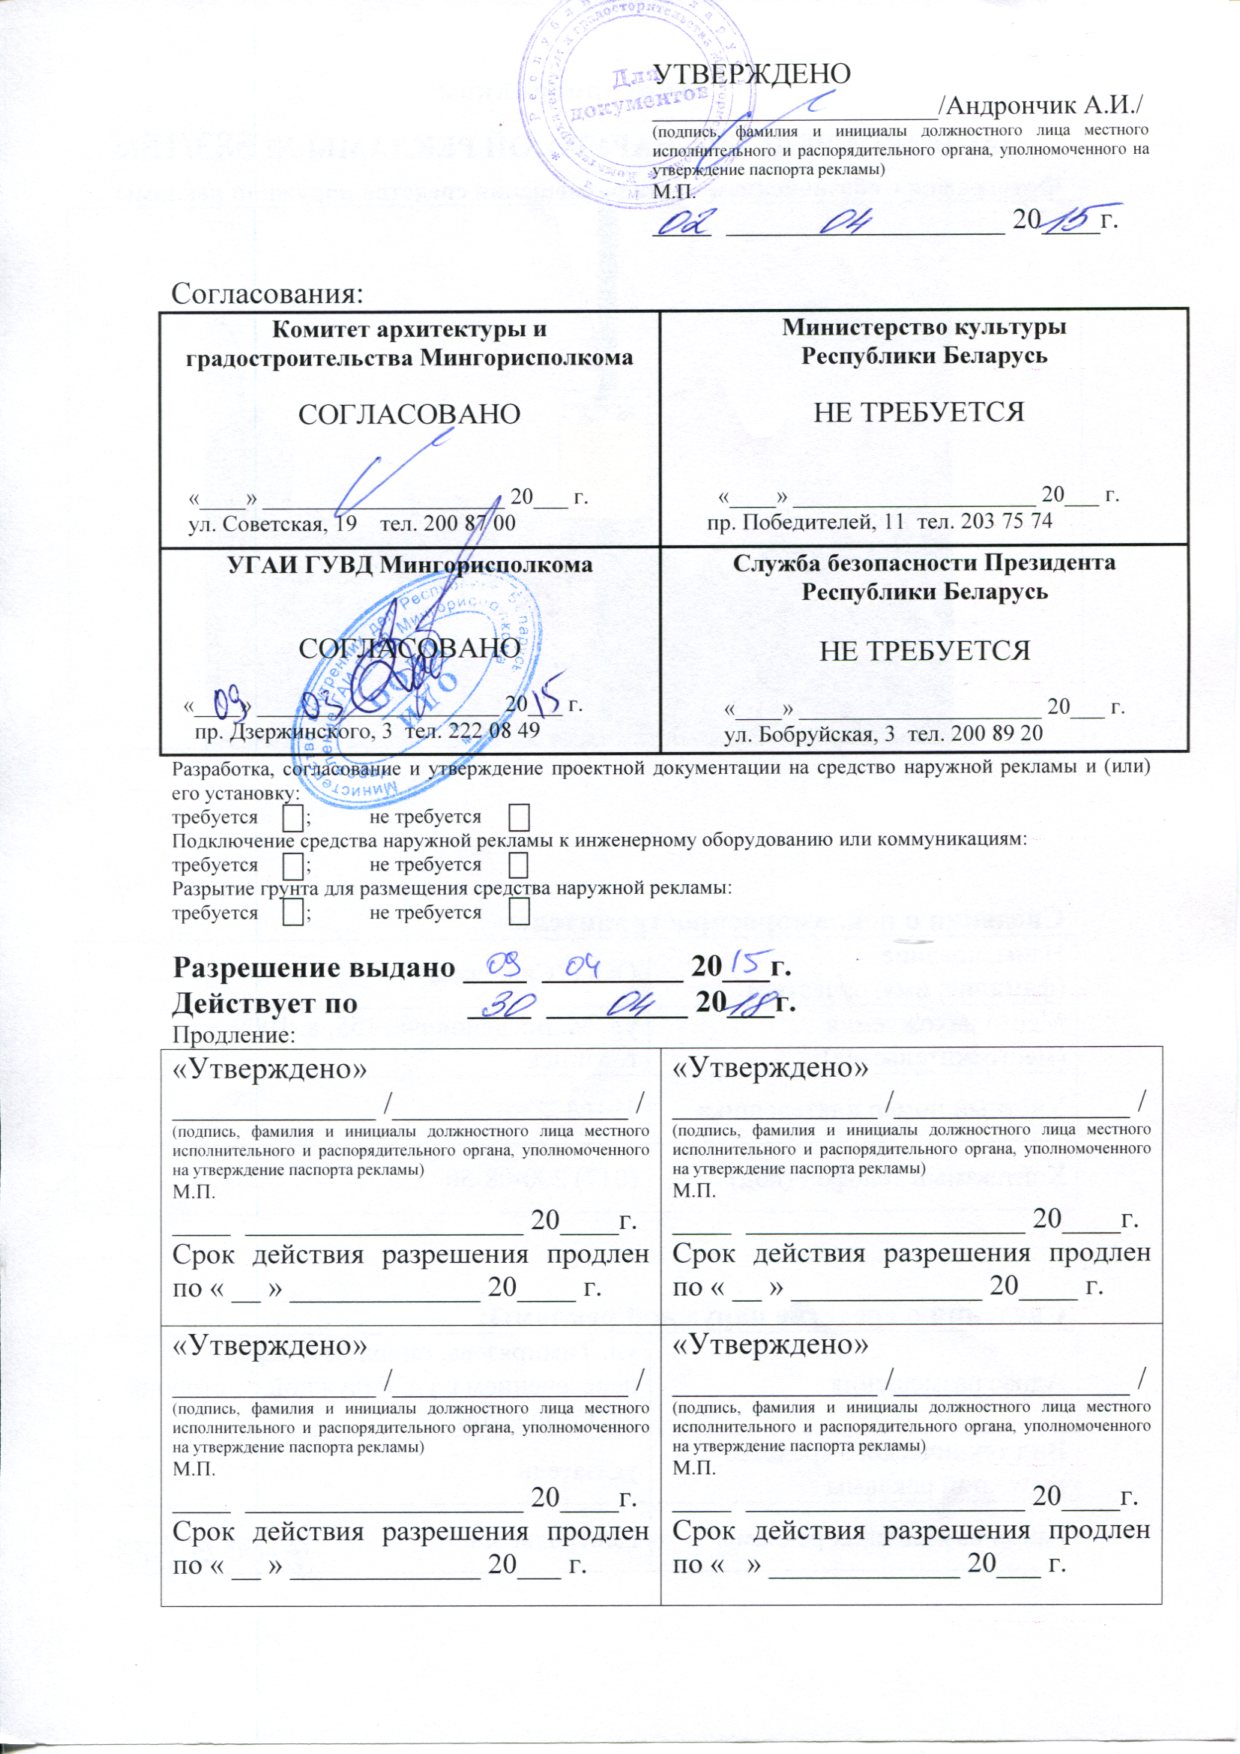 Для
документов
УТВЕРЖДЕНО
____________________/Андрончик А.И./
(подпись, фамилия и инициалы должностного лица местного
исполнительного и распорядительного органа, уполномоченного на
утверждение паспорта рекламы)
М.П.
02 04 2015г.
Согласования:
Комитет архитектуры и
градостроительства Мингорисполкома
СОГЛАСОВАНО
«____» ____________________ 20___ г.
ул. Советская, 19 тел. 200 87 00
Министерство культуры
Республики Беларусь
НЕ ТРЕБУЕТСЯ
«____» ____________________ 20___ г.
пр. Победителей, 11 тел. 203 75 74
УГАИ ГУВД Мингорисполкома
СОГЛАСОВАНО
«09» 03 2015 г.
пр. Дзержинского, 3 тел. 222 08 49
Служба безопасности Президента
Республики Беларусь
НЕ ТРЕБУЕТСЯ
«____» ____________________ 20___ г.
ул. Бобруйская, 3 тел. 200 89 20
Разработка, согласование и утверждение проектной документации на средство наружной рекламы и (или)
его установку:
требуется ; не требуется
Подключение средства наружной рекламы к инженерному оборудованию или коммуникациям:
требуется ; не требуется
Разрытие грунта для размещения средства наружной рекламы:
требуется ; не требуется
Разрешение выдано 09 04 2015г.
Действует по 30 04 2018г.
Продление:
«Утверждено»
______________ /________________ /
(подпись, фамилия и инициалы должностного лица местного
исполнительного и распорядительного органа, уполномоченного
на утверждение паспорта рекламы)
М.П.
____ ___________________ 20____г.
Срок действия разрешения продлен
по « __ » _____________ 20____ г.
«Утверждено»
______________ /________________ /
(подпись, фамилия и инициалы должностного лица местного
исполнительного и распорядительного органа, уполномоченного
на утверждение паспорта рекламы)
М.П.
____ ___________________ 20____г.
Срок действия разрешения продлен
по « __ » _____________ 20____ г.
«Утверждено»
______________ /________________ /
(подпись, фамилия и инициалы должностного лица местного
исполнительного и распорядительного органа, уполномоченного
на утверждение паспорта рекламы)
М.П.
____ ___________________ 20____г.
Срок действия разрешения продлен
по « __ » _____________ 20___ г.
«Утверждено»
______________ /________________ /
(подпись, фамилия и инициалы должностного лица местного
исполнительного и распорядительного органа, уполномоченного
на утверждение паспорта рекламы)
М.П.
____ ___________________ 20____г.
Срок действия разрешения продлен
по « » _____________ 20___ г.